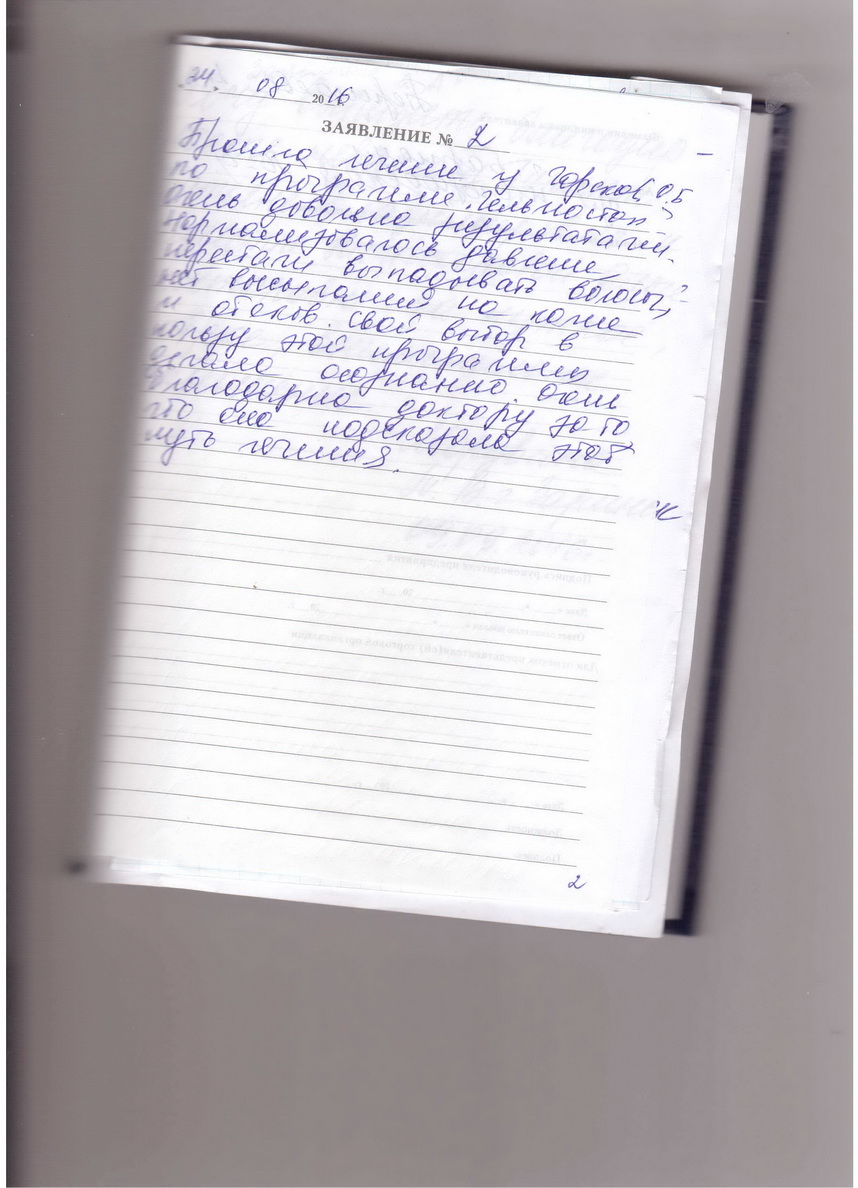 24. 08 2016
ЗАЯВЛЕНИЕ № 2
Прошла лечение у Гореков О.Б
по программе "Гельмостоп"
очень довольна результатами.
нормализовалось давление,
перестали выпадывать волосы,
нет высыпаний на коже
и отеков. Свой выбор в
пользу этой программы
делала осознанно. Очень
благодарна доктору за то
что она подсказала этот
путь лечения.
2